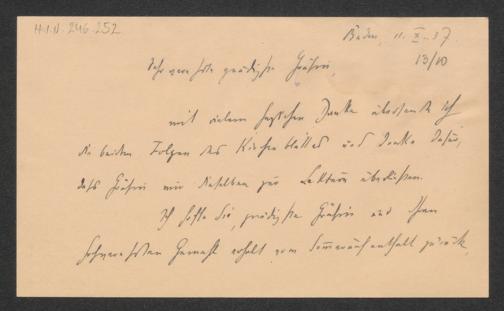 H.I.N. 246.252
Baden, 11. X. 37.
13/10
Sehr verehrte gnädigste Gräfin,
mit vielem herzlichen Danke übersende ich
die beiden Folgen des Kirchenblattes und danke dafür,
dass Gräfin mir dieselben zur Lektüre überließen.
Ich hoffe Sie, gnädigste Gräfin und Ihren
hochverehrten Gemahl erholt vom Sommeraufenthalt zurück,